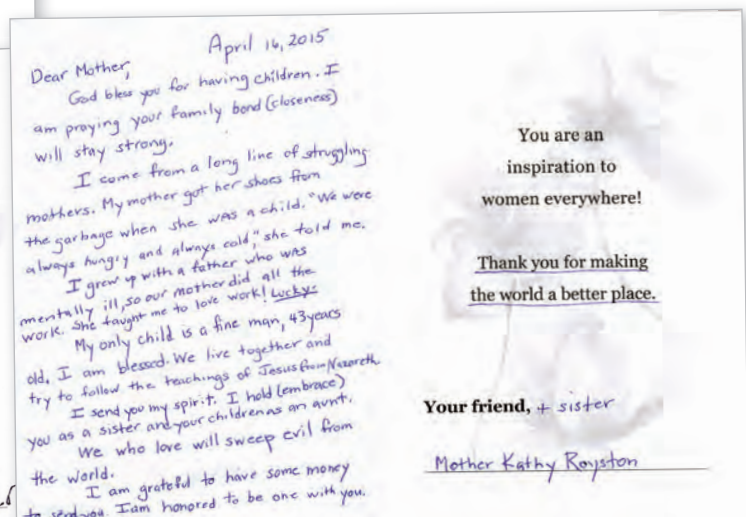 April 16, 2015
Dear Mother,
God bless you for having children. I
am praying your family bond (closeness)
will stay strong.
I come from a long line of struggling
mothers. My mother got her shoes from
the garbage when she was a child. "We were
always hungry and always cold," she told me.
I grew up with a father who was
mentally ill, so our mother did all the
work. She taught me to love work! Lucky.
My only child is a fine man, 43 years
old. I am blessed. We live together and
try to follow the teachings of Jesus from Nazareth.
I send you my spirit. I hold (embrace)
you as a sister and your children as an aunt.
We who love will sweep evil from
the world.
I am grateful to have some money
to send you. I am honored to be one with you.
You are an
inspiration to
women everywhere!
Thank you for making
the world a better place.
Your friend, + sister
Mother Kathy Royston